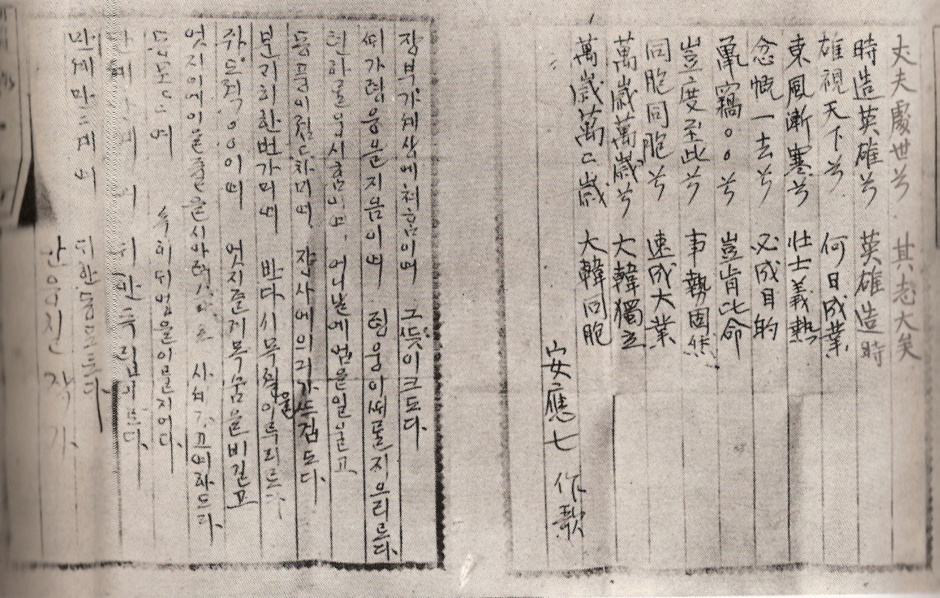 丈夫處世兮 其志大矣
時造英雄兮 英雄造時
雄視天下兮 何日成業
東風漸寒兮 壯士義熱
念慨一去兮 必成目的
鼠竊〇〇兮 豈肯比命
豈度至此兮 事勢固然
同胞同胞兮 速成大業
萬歲萬歲兮 大韓獨立
萬歲萬々歲 大韓同胞
安應七 作歌
장부가세상에처함이여 그뜻이크도다.
ᄯᅢ가령웅을지음이여 령웅이ᄯᅢ를지으리로다.
텬하를웅시함이여 어니날에업을일울고
동풍이졈드차미여 쟝사에의리가뜨겁도다.
분기히한번가미여 반다시목젹을이루리로다.
쥐도젹〇〇이여 엇지즐겨목숨을비길고
엇지이에이를줄을시아려스리요 사셰가고여하도다.
동포동포여 속히대업을이룰지어다.
만세만세여 대한독립이로다.
만세만세여 대한동포로다
안응칠 작가